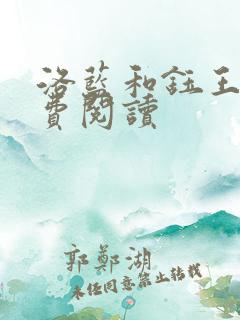 洛藍和鈺王
費閱讀
郭鄭湖
未經同意禁止轉載